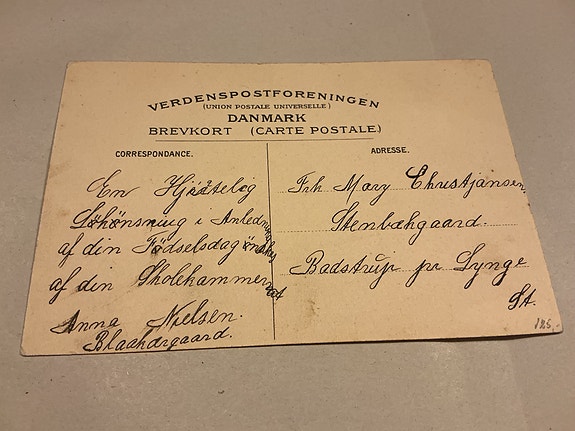 VERDENSPOSTFORENINGEN
(UNION POSTALE UNIVERSELLE)
DANMARK
BREVKORT (CARTE POSTALE.)
CORRESPONDANCE.
ADRESSE.
En Hjertelig
i Anledning
af din Födselsdag önskes
af din Skolekammerat
Anna Nielsen.
Blaakærgaard.
Frk Mary Christjansen
Stenbækgaard.
Badstrup pr Lynge
St.